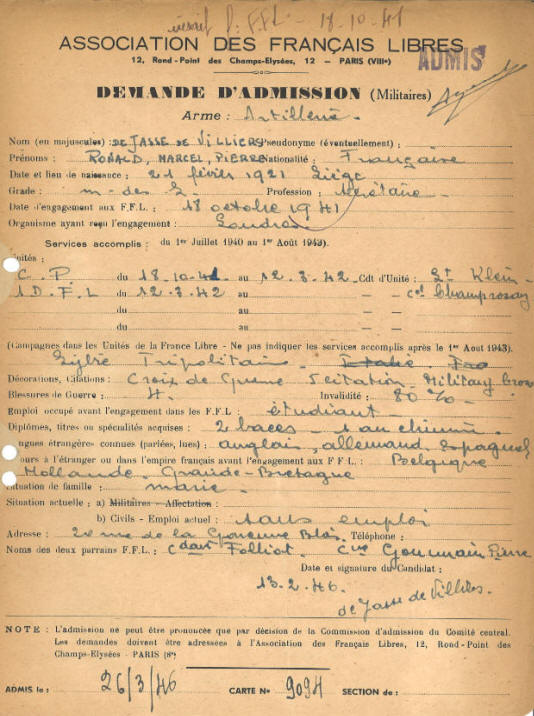 F.F.L. 18-10-41
ASSOCIATION DES FRANÇAIS LIBRES
ADMIS
12, Rond-Point des Champs-Elysées, 12 — PARIS (VIIIe)
DEMANDE D'ADMISSION (Militaires)
Arme : Artillerie
Nom (en majuscules) : DE JASSE DE VILLIERS Pseudonyme (éventuellement) :
Prénoms : RONALD, MARCEL, PIERRE Nationalité : Française
Date et lieu de naissance : 21 février 1921 Liège
Grade : m. des L. Profession : secrétaire
Date d'engagement aux F.F.L. : 18 octobre 1941
Organisme ayant reçu l'engagement : Londres
Services accomplis : du 1er Juillet 1940 au 1er Août 1943).
Unités :
C.P. du 18.10.41 au 12.3.42 Cdt d'Unité : Lt Klein
1 D.F.L du 12.3.42 au — — Cel Champrosay
du au — —
du au — —
(Campagnes dans les Unités de la France Libre - Ne pas indiquer les services accomplis après le 1er Aout 1943).
Tripolitaine Italie
Décorations, Citations : Croix de Guerre 1 citation. Military Cross
Blessures de Guerre : 4. Invalidité : 80 %
Emploi occupé avant l'engagement dans les F.F.L. : étudiant
Diplômes, titres ou spécialités acquises : 2 baccs - 1 an chimie
ngues étrangères connues (parlées, lues) : anglais, allemand, Espagnol
ours à l'étranger ou dans l'empire français avant l'engagement aux F.F.L. : Belgique
Hollande, Grande-Bretagne
Situation de famille : marié
Situation actuelle : a) Militaires - Affectation :
b) Civils - Emploi actuel : sans emploi
Adresse : rue de la Garenne Téléphone :
Noms des deux parrains F.F.L. : Cdant Folliot. Gourmain Pierre
Date et signature du Candidat :
13.2.46
de Jasse de Villiers
NOTE : L'admission ne peut être prononcée que par décision de la Commission d'admission du Comité central.
Les demandes doivent être adressées à l'Association des Français Libres, 12, Rond-Point des
Champs-Elysées - PARIS (8e)
ADMIS le : 26/3/46 CARTE No 9094 SECTION de :